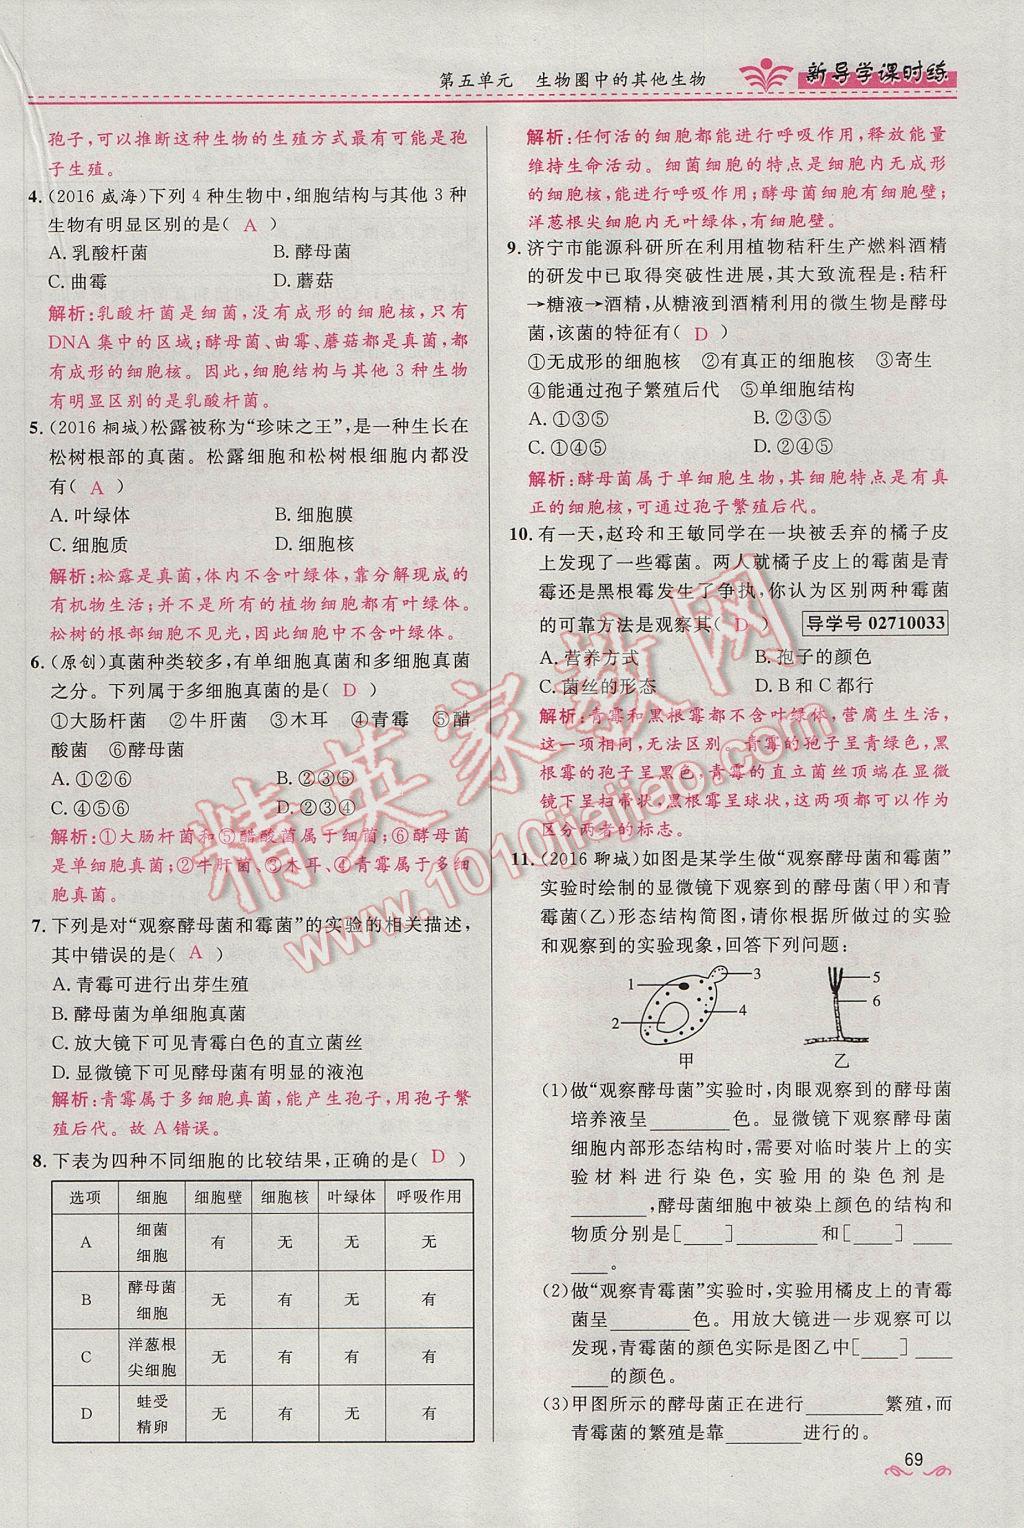 第五单元　生物圈中的其他生物
新导学课时练
孢子,可以推断这种生物的生殖方式最有可能是孢
子生殖。
4.(2016 威海)下列 4 种生物中,细胞结构与其他 3 种
生物有明显区别的是( A )
A. 乳酸杆菌　B. 酵母菌
C. 曲霉　D. 蘑菇
解析:乳酸杆菌是细菌,没有成形的细胞核,只有
DNA 集中的区域;酵母菌、曲霉、蘑菇都是真菌,都
有成形的细胞核。因此,细胞结构与其他 3 种生物
有明显区别的是乳酸杆菌。
5.(2016 桐城)松露被称为“珍味之王”,是一种生长在
松树根部的真菌。松露细胞和松树根细胞内都没
有( A )
A. 叶绿体　B. 细胞膜
C. 细胞质　D. 细胞核
解析:松露是真菌,体内不含叶绿体,靠分解现成的
有机物生活;并不是所有的植物细胞都有叶绿体。
松树的根部细胞不见光,因此细胞中不含叶绿体。
6.(原创)真菌种类较多,有单细胞真菌和多细胞真菌
之分。下列属于多细胞真菌的是( D )
①大肠杆菌　②牛肝菌　③木耳　④青霉　⑤醋
酸菌　⑥酵母菌
A. ①②⑥　B. ②③⑤
C. ④⑤⑥　D. ②③④
解析:①大肠杆菌和⑤醋酸菌属于细菌;⑥酵母菌
是单细胞真菌;②牛肝菌、③木耳、④青霉属于多细
胞真菌。
7. 下列是对“观察酵母菌和霉菌”的实验的相关描述,
其中错误的是( A )
A. 青霉可进行出芽生殖
B. 酵母菌为单细胞真菌
C. 放大镜下可见青霉白色的直立菌丝
D. 显微镜下可见酵母菌有明显的液泡
解析:青霉属于多细胞真菌,能产生孢子,用孢子繁
殖后代。故 A 错误。
8. 下表为四种不同细胞的比较结果,正确的是( D )
选项　细胞　细胞壁　细胞核　叶绿体　呼吸作用
A　细菌细胞　有　无　无　无
B　酵母菌细胞　无　有　无　有
C　洋葱根尖细胞　无　有　有　有
D　蛙受精卵　无　有　无　有
解析:任何活的细胞都能进行呼吸作用,释放能量
维持生命活动。细菌细胞的特点是细胞内无成形
的细胞核,能进行呼吸作用;酵母菌细胞有细胞壁;
洋葱根尖细胞内无叶绿体,有细胞壁。
9. 济宁市能源科研所在利用植物秸秆生产燃料酒精
的研发中已取得突破性进展,其大致流程是:秸秆
→糖液→酒精,从糖液到酒精利用的微生物是酵母
菌,该菌的特征有( D )
①无成形的细胞核　②有真正的细胞核　③寄生
④能通过孢子繁殖后代　⑤单细胞结构
A. ①③⑤　B. ②③⑤
C. ①④⑤　D. ②④⑤
解析:酵母菌属于单细胞生物,其细胞特点是有真
正的细胞核,可通过孢子繁殖后代。
10. 有一天,赵玲和王敏同学在一块被丢弃的橘子皮
上发现了一些霉菌。两人就橘子皮上的霉菌是青
霉还是黑根霉发生了争执,你认为区别两种霉菌
的可靠方法是观察其( D )　导学号 02710033
A. 营养方式　B. 孢子的颜色
C. 菌丝的形态　D. B 和 C 都行
解析:青霉和黑根霉都不含叶绿体,营腐生生活,
这一项相同,无法区别。青霉的孢子呈青绿色,黑
根霉的孢子呈黑色;青霉的直立菌丝顶端在显微
镜下呈扫帚状,黑根霉呈球状,这两项都可以作为
区分两者的标志。
11.(2016 聊城)如图是某学生做“观察酵母菌和霉菌”
实验时绘制的显微镜下观察到的酵母菌(甲)和青
霉菌(乙)形态结构简图,请你根据所做过的实验
和观察到的实验现象,回答下列问题:
1
2
3
4
5
6
甲　乙
(1)做“观察酵母菌”实验时,肉眼观察到的酵母菌
培养液呈________色。显微镜下观察酵母菌
细胞内部形态结构时,需要对临时装片上的实
验材料进行染色,实验用的染色剂是
________,酵母菌细胞中被染上颜色的结构和
物质分别是[____]________和[____]____
____。
(2)做“观察青霉菌”实验时,实验用橘皮上的青霉
菌呈________色。用放大镜进一步观察可以
发现,青霉菌的颜色实际是图乙中[____]____
____的颜色。
(3)甲图所示的酵母菌正在进行________繁殖,而
青霉菌的繁殖是靠________繁殖。
69
精英家教网
www.1010jiajiao.com